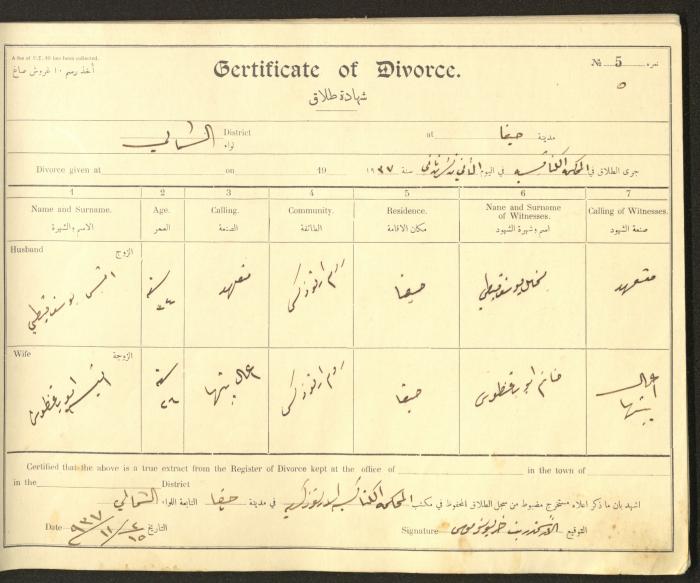 A fee of P.T. 10 has been collected.
أخذ رسم ١٠ غروش صاغ
Certificate of Divorce.
شهادة طلاق
№ 5 نمره
٥
الشمالي District لواء at حيفا مدينة
Divorce given at on 19 ١٩٣٧ سنة في اليوم الثاني من تشرين ثاني جرى الطلاق في المحكمة الكنائسية
1 2 3 4 5 6 7
Name and Surname. Age. Calling. Community. Residence. Name and Surname of Witnesses. Calling of Witnesses.
الاسم والشهرة العمر الصنعة الطائفة مكان الاقامة اسم وشهرة الشهود صنعة الشهود
Husband الزوج
يوسف قبطي سنة متعهد روم ارثوذكس حيفا يوسف قبطي متعهد
Wife الزوجة
سنة ٢٦ اعمال بيتها روم ارثوذكس حيفا اعمال بيتها
Certified that the above is a true extract from the Register of Divorce kept at the office of in the town of
in the District
اشهد بان ما ذكر اعلاه مستخرج مضبوط من سجل الطلاق المحفوظ في مكتب المحكمة الكنائسية الارثوذكسية في مدينة حيفا التابعة اللواء الشمالي
Date التاريخ Signature التوقيع